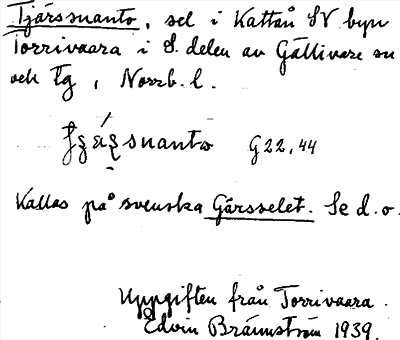 Tjärssuanto, sel i Kattån SV byn
Torrivaara i S. delen av Gällivare sn
och tg, Norrb. l.
suanto G22,44
Kallas på svenska Gärsselet. Se d.o.
Uppgiften från Torrivaara.
Edvin Brännström 1939.